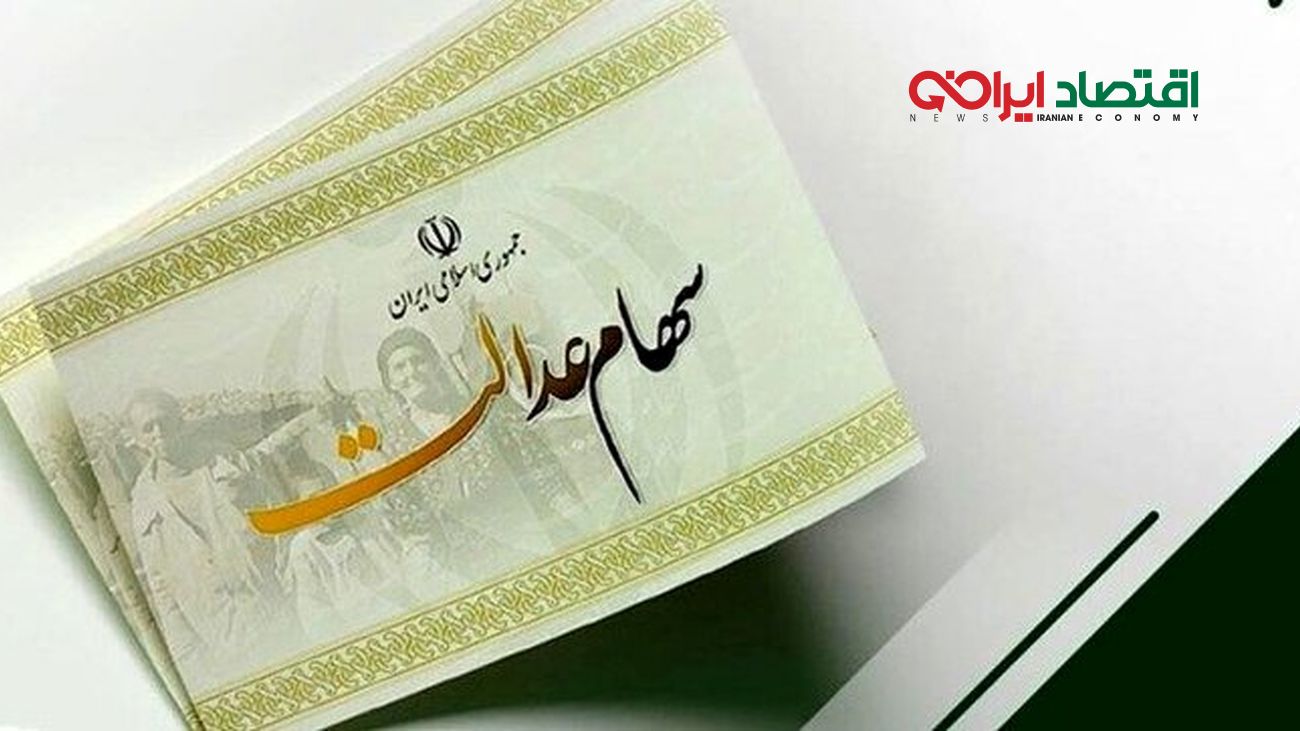 اقتصاد ایرانی
NEWS IRANIAN ECONOMY
جمهوری اسلامی ایران
سهام عدالت